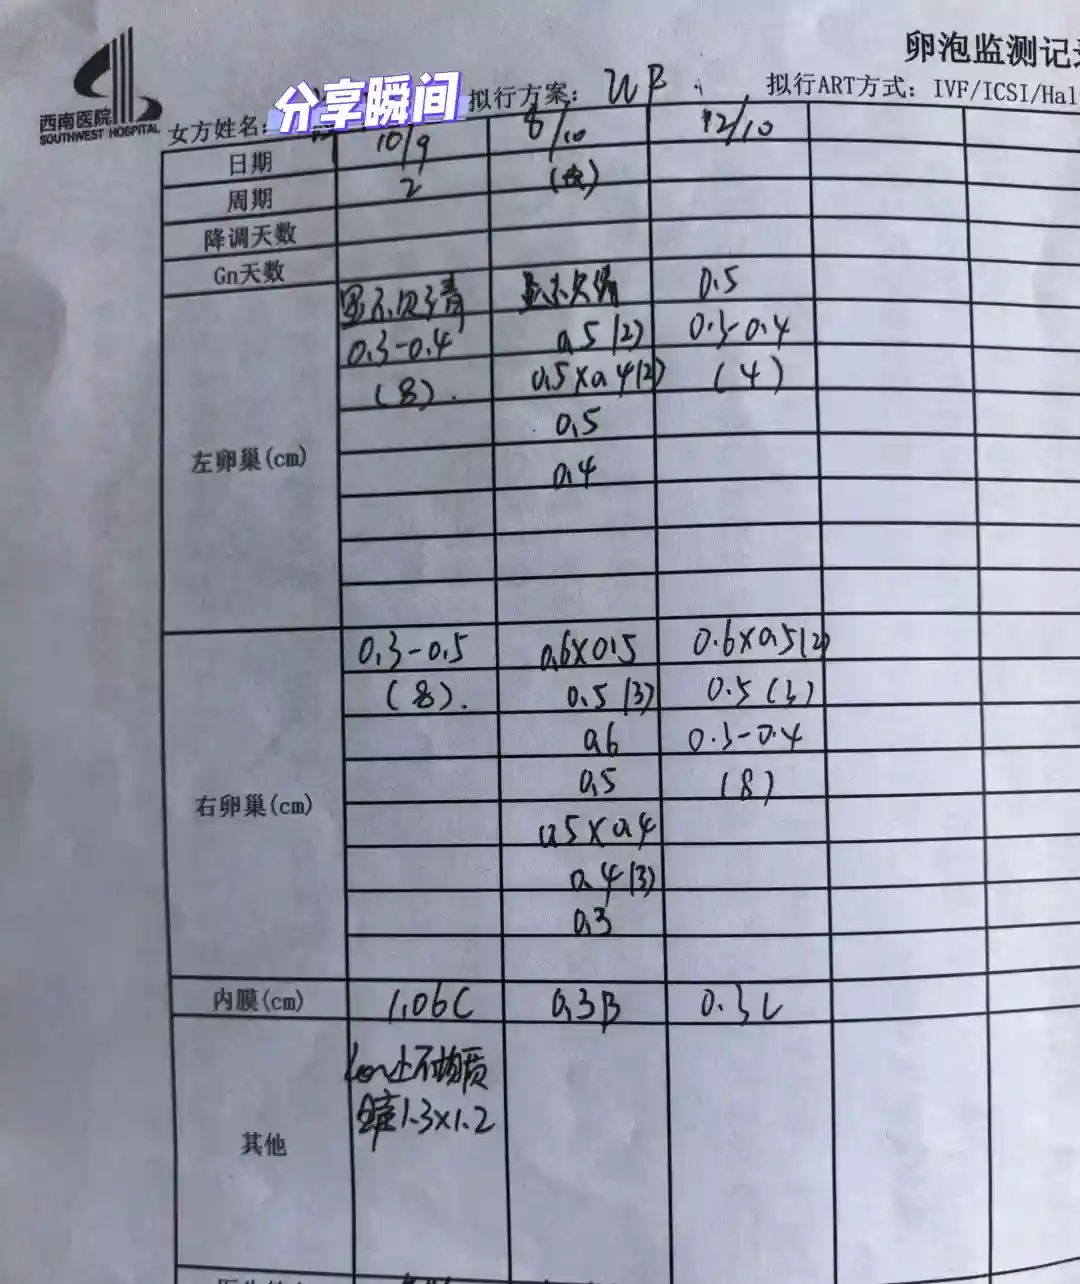 卵泡监测记录
西南医院
SOUTHWEST HOSPITAL
分享瞬间
女方姓名:
拟行方案:
拟行ART方式: IVF/ICSI/Hal
日期 10/9 8/10 12/10
周期 2
降调天数
Gn天数
显示欠清 显示欠清 0.5
0.3-0.4 0.5(2) 0.3-0.4
(8). 0.5×0.4(2) (4)
0.5
左卵巢(cm)
0.4
0.3-0.5 0.6×0.5 0.6×0.5(2)
(8). 0.5(3) 0.5(3)
0.6 0.3-0.4
右卵巢(cm) 0.5 (8)
0.5×0.4
0.4(3)
0.3
内膜(cm) 1.06C 0.3B 0.3C
不均质
1.3×1.2
其他